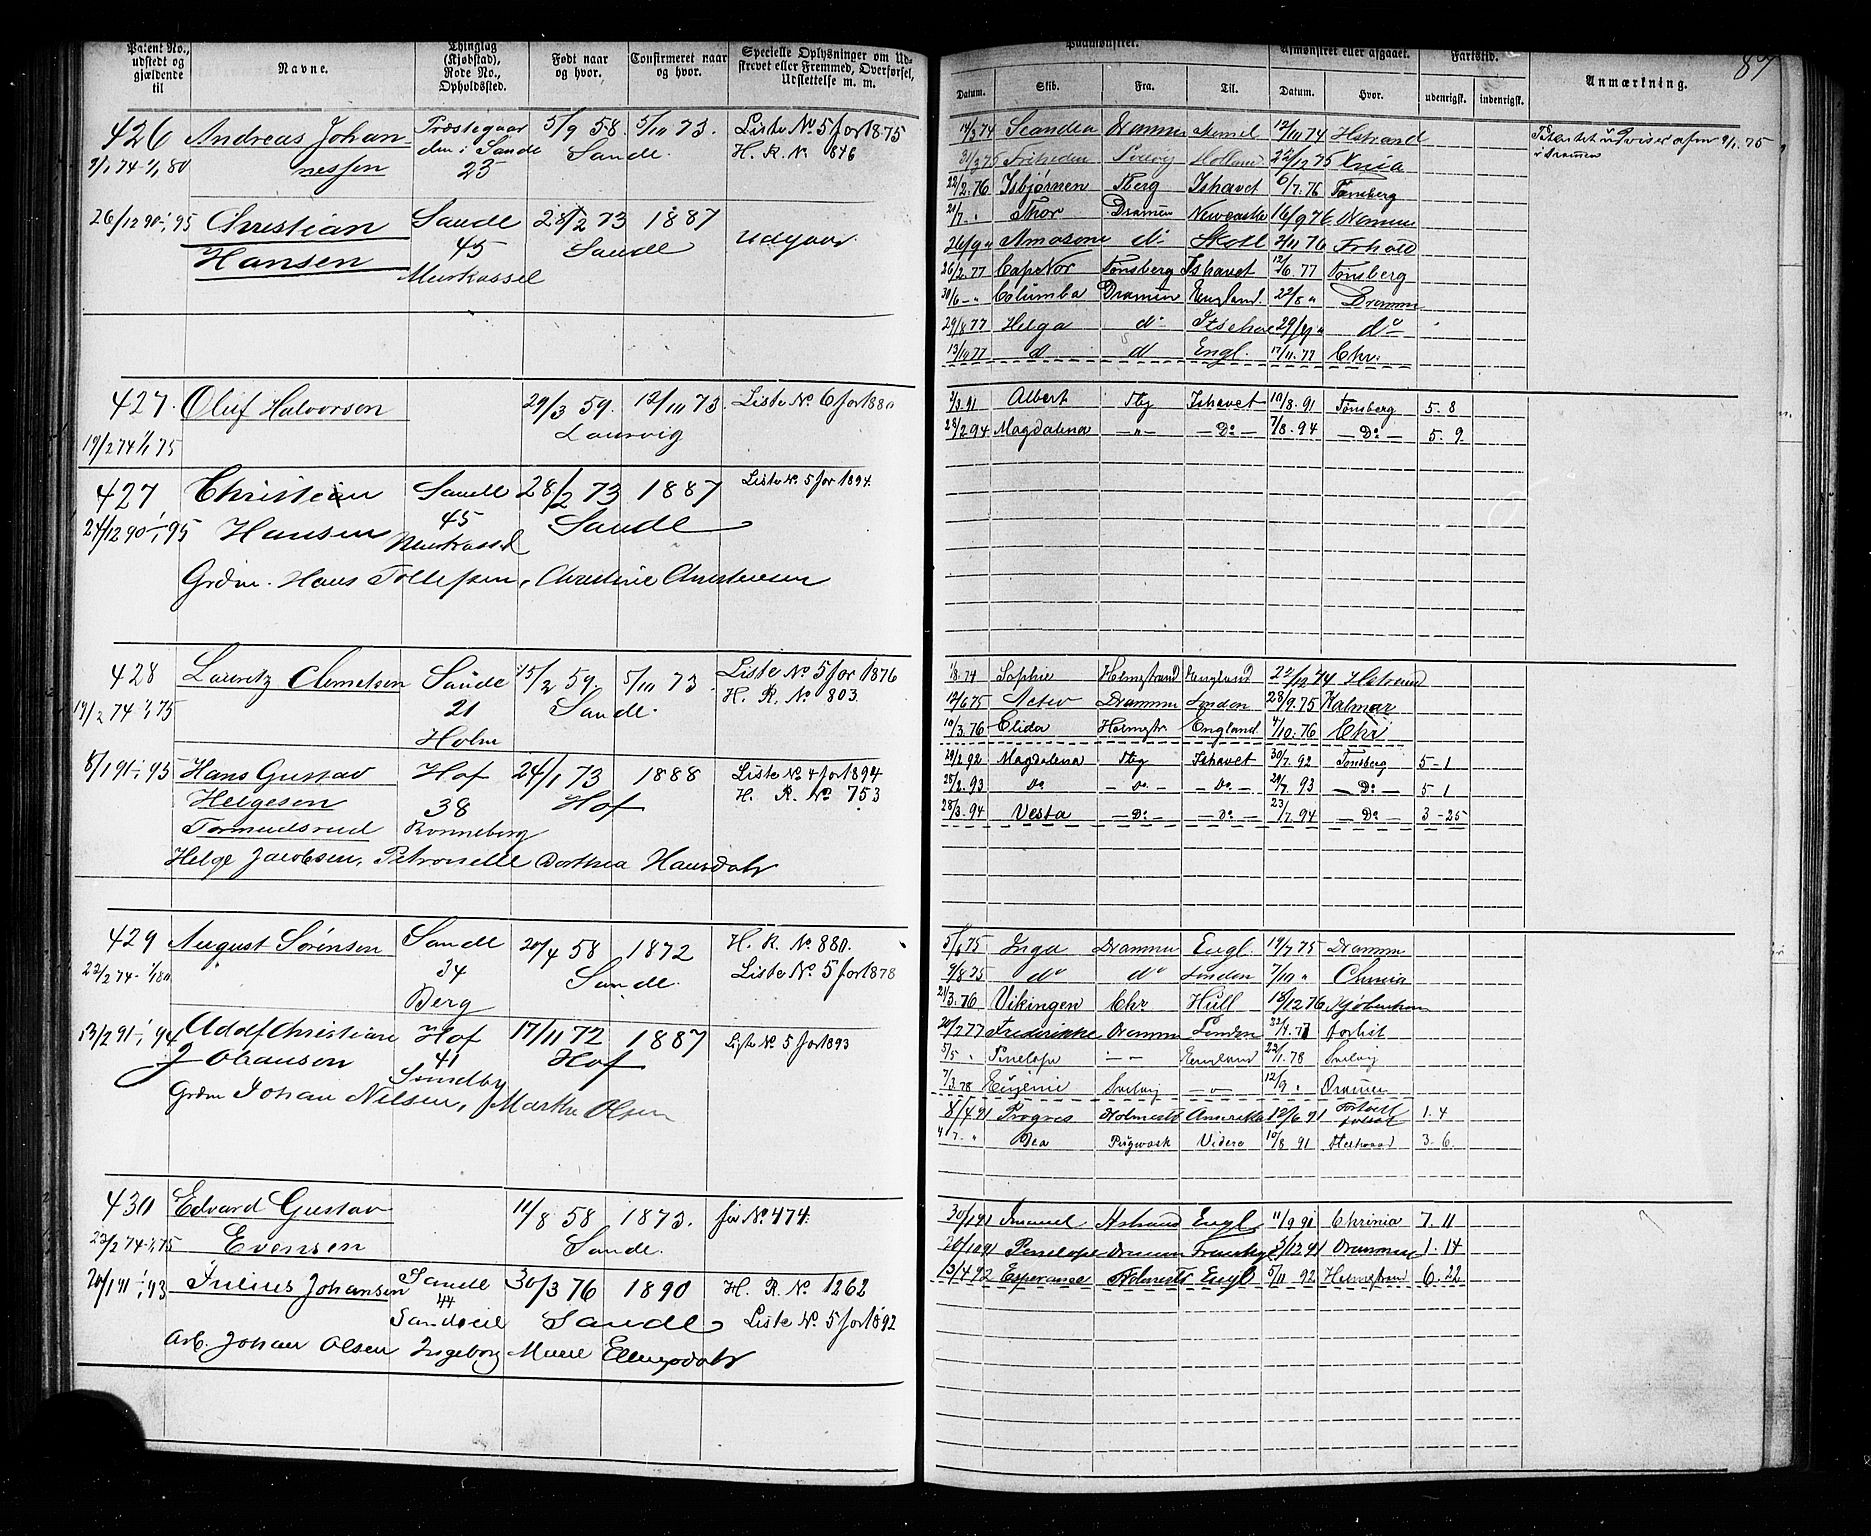 Patent No., udstedt og gjældende til
Navne.
Thinglag (Kjøbstad), Rode No., Opholdssted.
Født naar og hvor.
Confirmeret naar og hvor.
Specielle Oplysninger om Udskrevet eller Fremmed, Overførsel, Udslettelse m. m.
426 Andreas Johan- Præstegaar 5/9 58. 5/10 73. Liste No 5 for 1875
nessen den i Sande Sande. H. R. No 846
9/1 74-1/1 80 25
26/12 90-1/1 95 Christian Sande 28/2 73 1887
Hansen 45 Sande Udgaar.
Murkassel
427. Oluf Halvorsen 29/3 59. 12/10 73. Liste No 6 for 1880
19/2 74 1/1 75 Laurvig
427 Christian Sande 28/2 73 1887 Liste No 5 for 1894.
24/12 90-1/1 95 Hansen 45 Sande
Murkassel
Grdm. Hans Tollefsen, Christine Christensen
428 Lauritz Clemetsen Sande 15/2 59. 5/10 73. Liste No 5 for 1876
19/2 74-1/1 75 21 Sande. H. R. No 803.
Holm
8/1 91-1/1 95 Hans Gustav Hof 24/1 73 1888 Liste No 4 for 1894
Helgesen 38 Hof H. R. No 753
Tormeulsrud Ronneberg
Helge Jacobsen, Petronelle Dorthea Hansdatr
429 August Sørensen Sande 20/4 58 1872 H. R. No 880.
22/2 74-1/1 80 34 Sande. Liste No 5 for 1878
Berg
13/2 91-1/1 94 Adolf Christian Hof 17/11 72 1887 Liste No 5 for 1893
Johansen 41 Hof
Sundby
Grdm Johan Nilsen, Marthe Olsen
430 Edvard Gustav 11/8 58 1873. før No 474.
22/2 74-1/1 75 Evensen Sande.
20/1 91-1/1 93 Julius Johansen Sande 30/3 76 1890 H. R. No 1262
44 Sande Liste No 5 for 1892
Arb. Johan Olsen Ingeborg Marie
87
Paamønstret.
Afmønstret eller afgaaet.
Fartstid.
Anmærkning.
Datum. Skib. Fra. Til. Datum. Hvor. udenrigsk. indenrigsk.
Scandia Drammen Memel 12/11 74 Hstrand
Svelvig Holland 22/12 75 Xnia
22/2. 76 Isbjørnen Tberg Ishavet 6/7. 76 Tønsberg
Thor Dramen Newcastle 16/9 76 Dramen
26/9 " Amasone do Skotl 2/11 76 Frhald
26/2. 77 Cape Nor Tønsberg Ishavet 12/6 77 Tønsberg
30/6 - " Columba Dramen England. 22/8 " Drammen
29/8 77 Helga do 29/9 " do
13/10 77 d d Engl. 17/11. 77 Chr.
7/3. 91 Albert Tbg Ishavet 10/8. 91 Tønsberg 5. 8
28/2 94 Magdalena - " - - Do - 7/8. 94 - Do - 5. 9
1/8. 74 Sophie Holmstrand England 22/12 74 Hstrand
12/6 75 Activ Drammen London 28/9. 75 Kalmar
10/3. 76 Elida Holmstr England. 4/10. 76 Chr
29/2. 92 Magdalena Tbg Ishavet 30/7. 92 Tønsberg 5 - 1
25/2. 93 Do - Do. - - Do. - 29/7. 93 - Do - 5 1
28/3. 94 Vesta - Do - - Do - 23/7. 94 - Do - 3 - 25
5/6 75 Inga Drammen Engl. 19/7 75 Drammen
9/8 75 do do London 7/10 "
21/3. 76 Vikingen Chr Hull 18/12 76 Kjøbenhavn
20/2 77 Frederikke Dramen London forlist
5/5 " Penelope - - England 22/1. 78 Svelvig
7/3. 78 Eugenie Svelvig - - 12/9 " Dramen
8/4 91 Progres Holmestr Amerika 12/6 91 Fortøill 1. 4
Dea Pugwash Videre 10/8 91 3. 6.
Hstrand Engl 11/9 91 Chrinia 7. 11
20/10 91 Penelope Dramen 3/12 91 Drammen 1. 14
13/4 92 Esperance Holmestr Engl 5/11 92 Holmestrand 6. 22